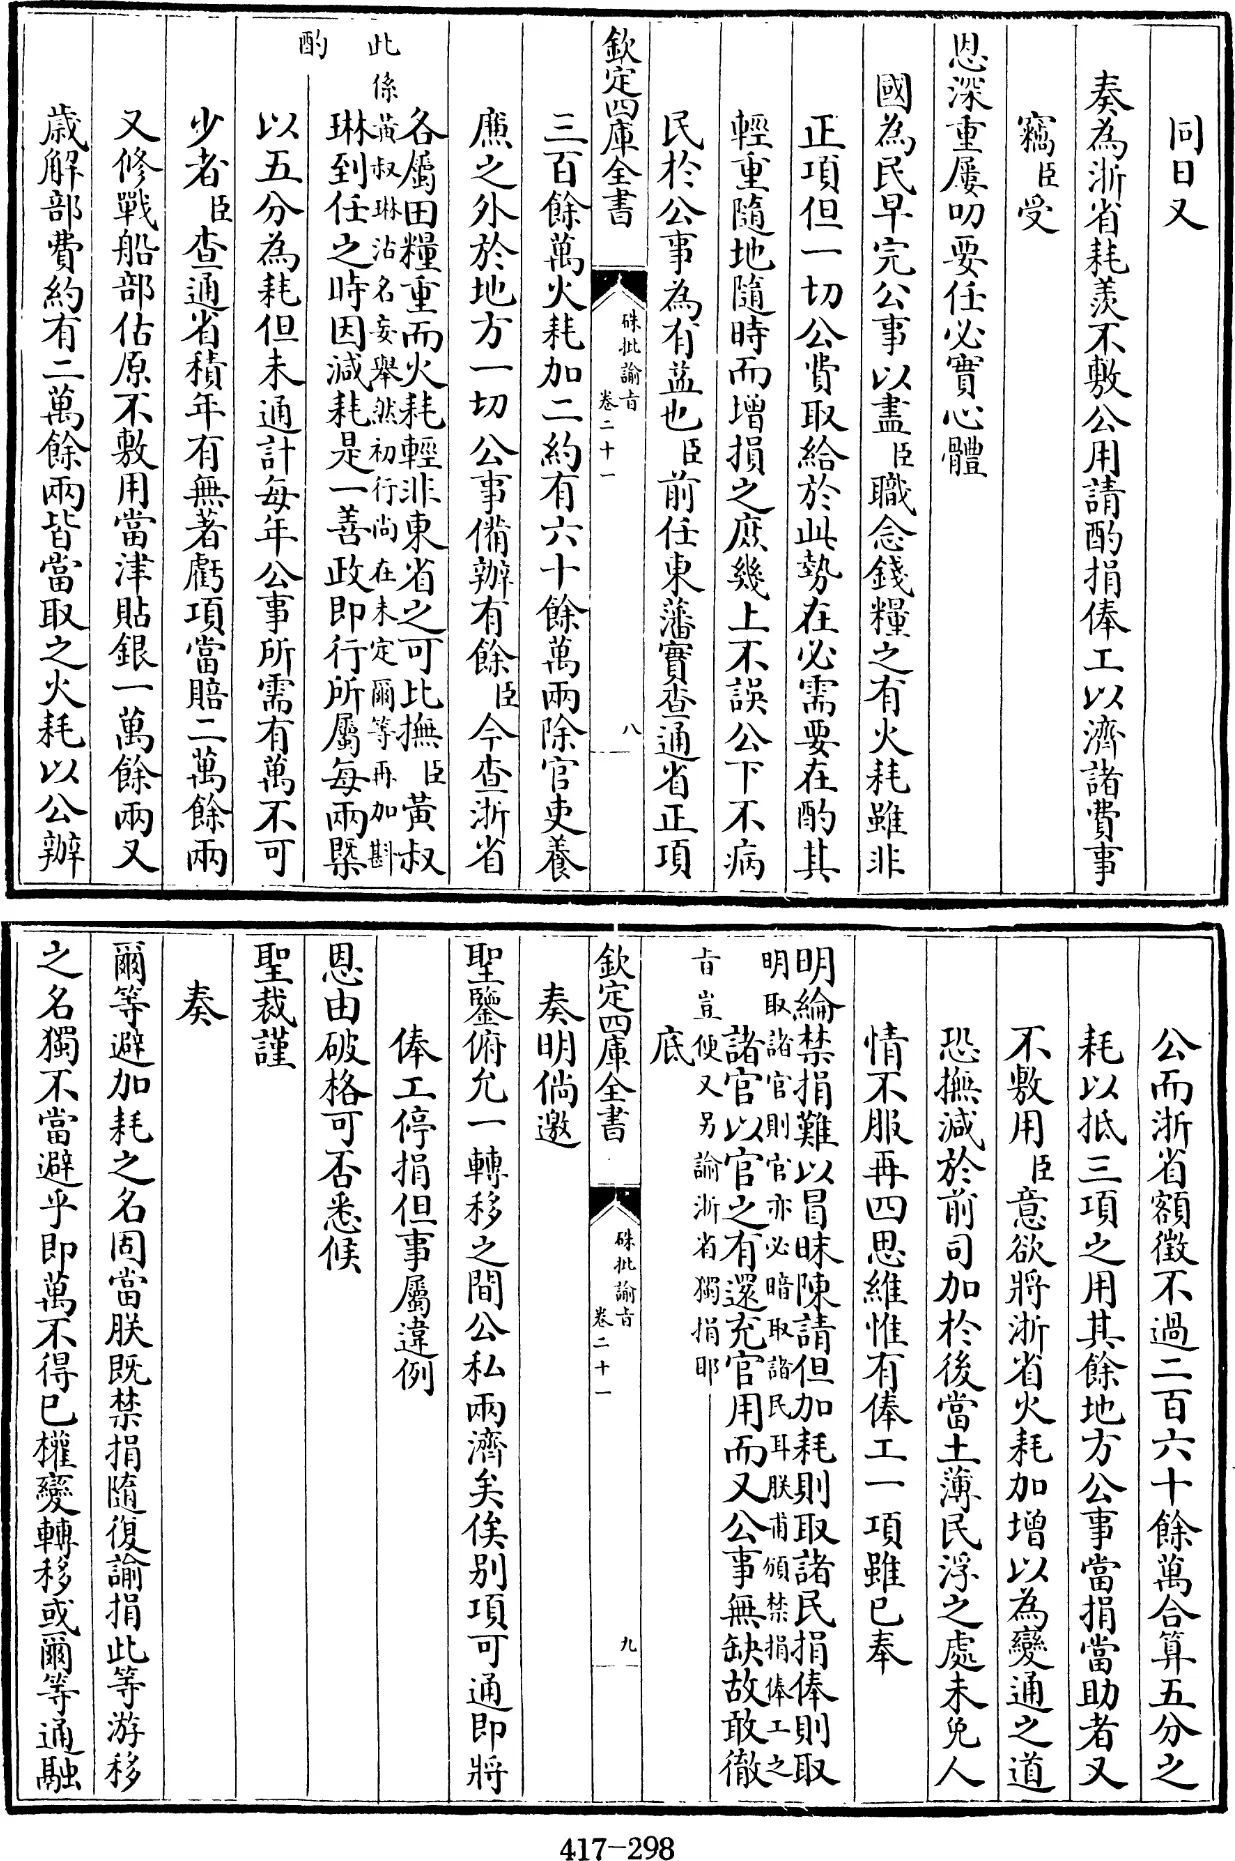 同日又
奏為浙省耗羨不敷公用請酌捐俸工以濟諸費事
竊臣受
恩深重屢叨要任必實心體
國為民早完公事以盡臣職念錢糧之有火耗雖非
正項但一切公費取給於此勢在必需要在酌其
輕重隨地隨時而增損之庶幾上不誤公下不病
民於公事為有益也臣前任東藩實查通省正項
欽定四庫全書
硃批諭旨
卷二十一
八
三百餘萬火耗加二約有六十餘萬兩除官吏養
廉之外於地方一切公事備辦有餘臣今查浙省
各屬田糧重而火耗輕非東省之可比撫臣黃叔
此係黃叔琳沽名妄舉然初行尚在未定爾等再加斟
酌
琳到任之時因減耗是一善政即行所屬每兩槩
以五分為耗但未通計每年公事所需有萬不可
少者臣查通省積年有無著虧項當賠二萬餘兩
又修戰船部估原不敷用當津貼銀一萬餘兩又
歲解部費約有二萬餘兩皆當取之火耗以公辦
公而浙省額徵不過二百六十餘萬合算五分之
耗以抵三項之用其餘地方公事當捐當助者又
不敷用臣意欲將浙省火耗加增以為變通之道
恐撫減於前司加於後當土薄民浮之處未免人
情不服再四思維惟有俸工一項雖已奉
明綸禁捐難以冒昧陳請但加耗則取諸民捐俸則取
明取諸官則官亦必暗取諸民耳朕甫頒禁捐俸工之
旨豈便又另諭浙省獨捐耶
諸官以官之有還充官用而又公事無缺故敢徹
底
欽定四庫全書
硃批諭旨
卷二十一
九
奏明倘邀
聖鑒俯允一轉移之間公私兩濟矣俟別項可通即將
俸工停捐但事屬違例
恩由破格可否悉候
聖裁謹
奏
爾等避加耗之名固當朕既禁捐隨復諭捐此等游移
之名獨不當避乎即萬不得已權變轉移或爾等通融
417-298